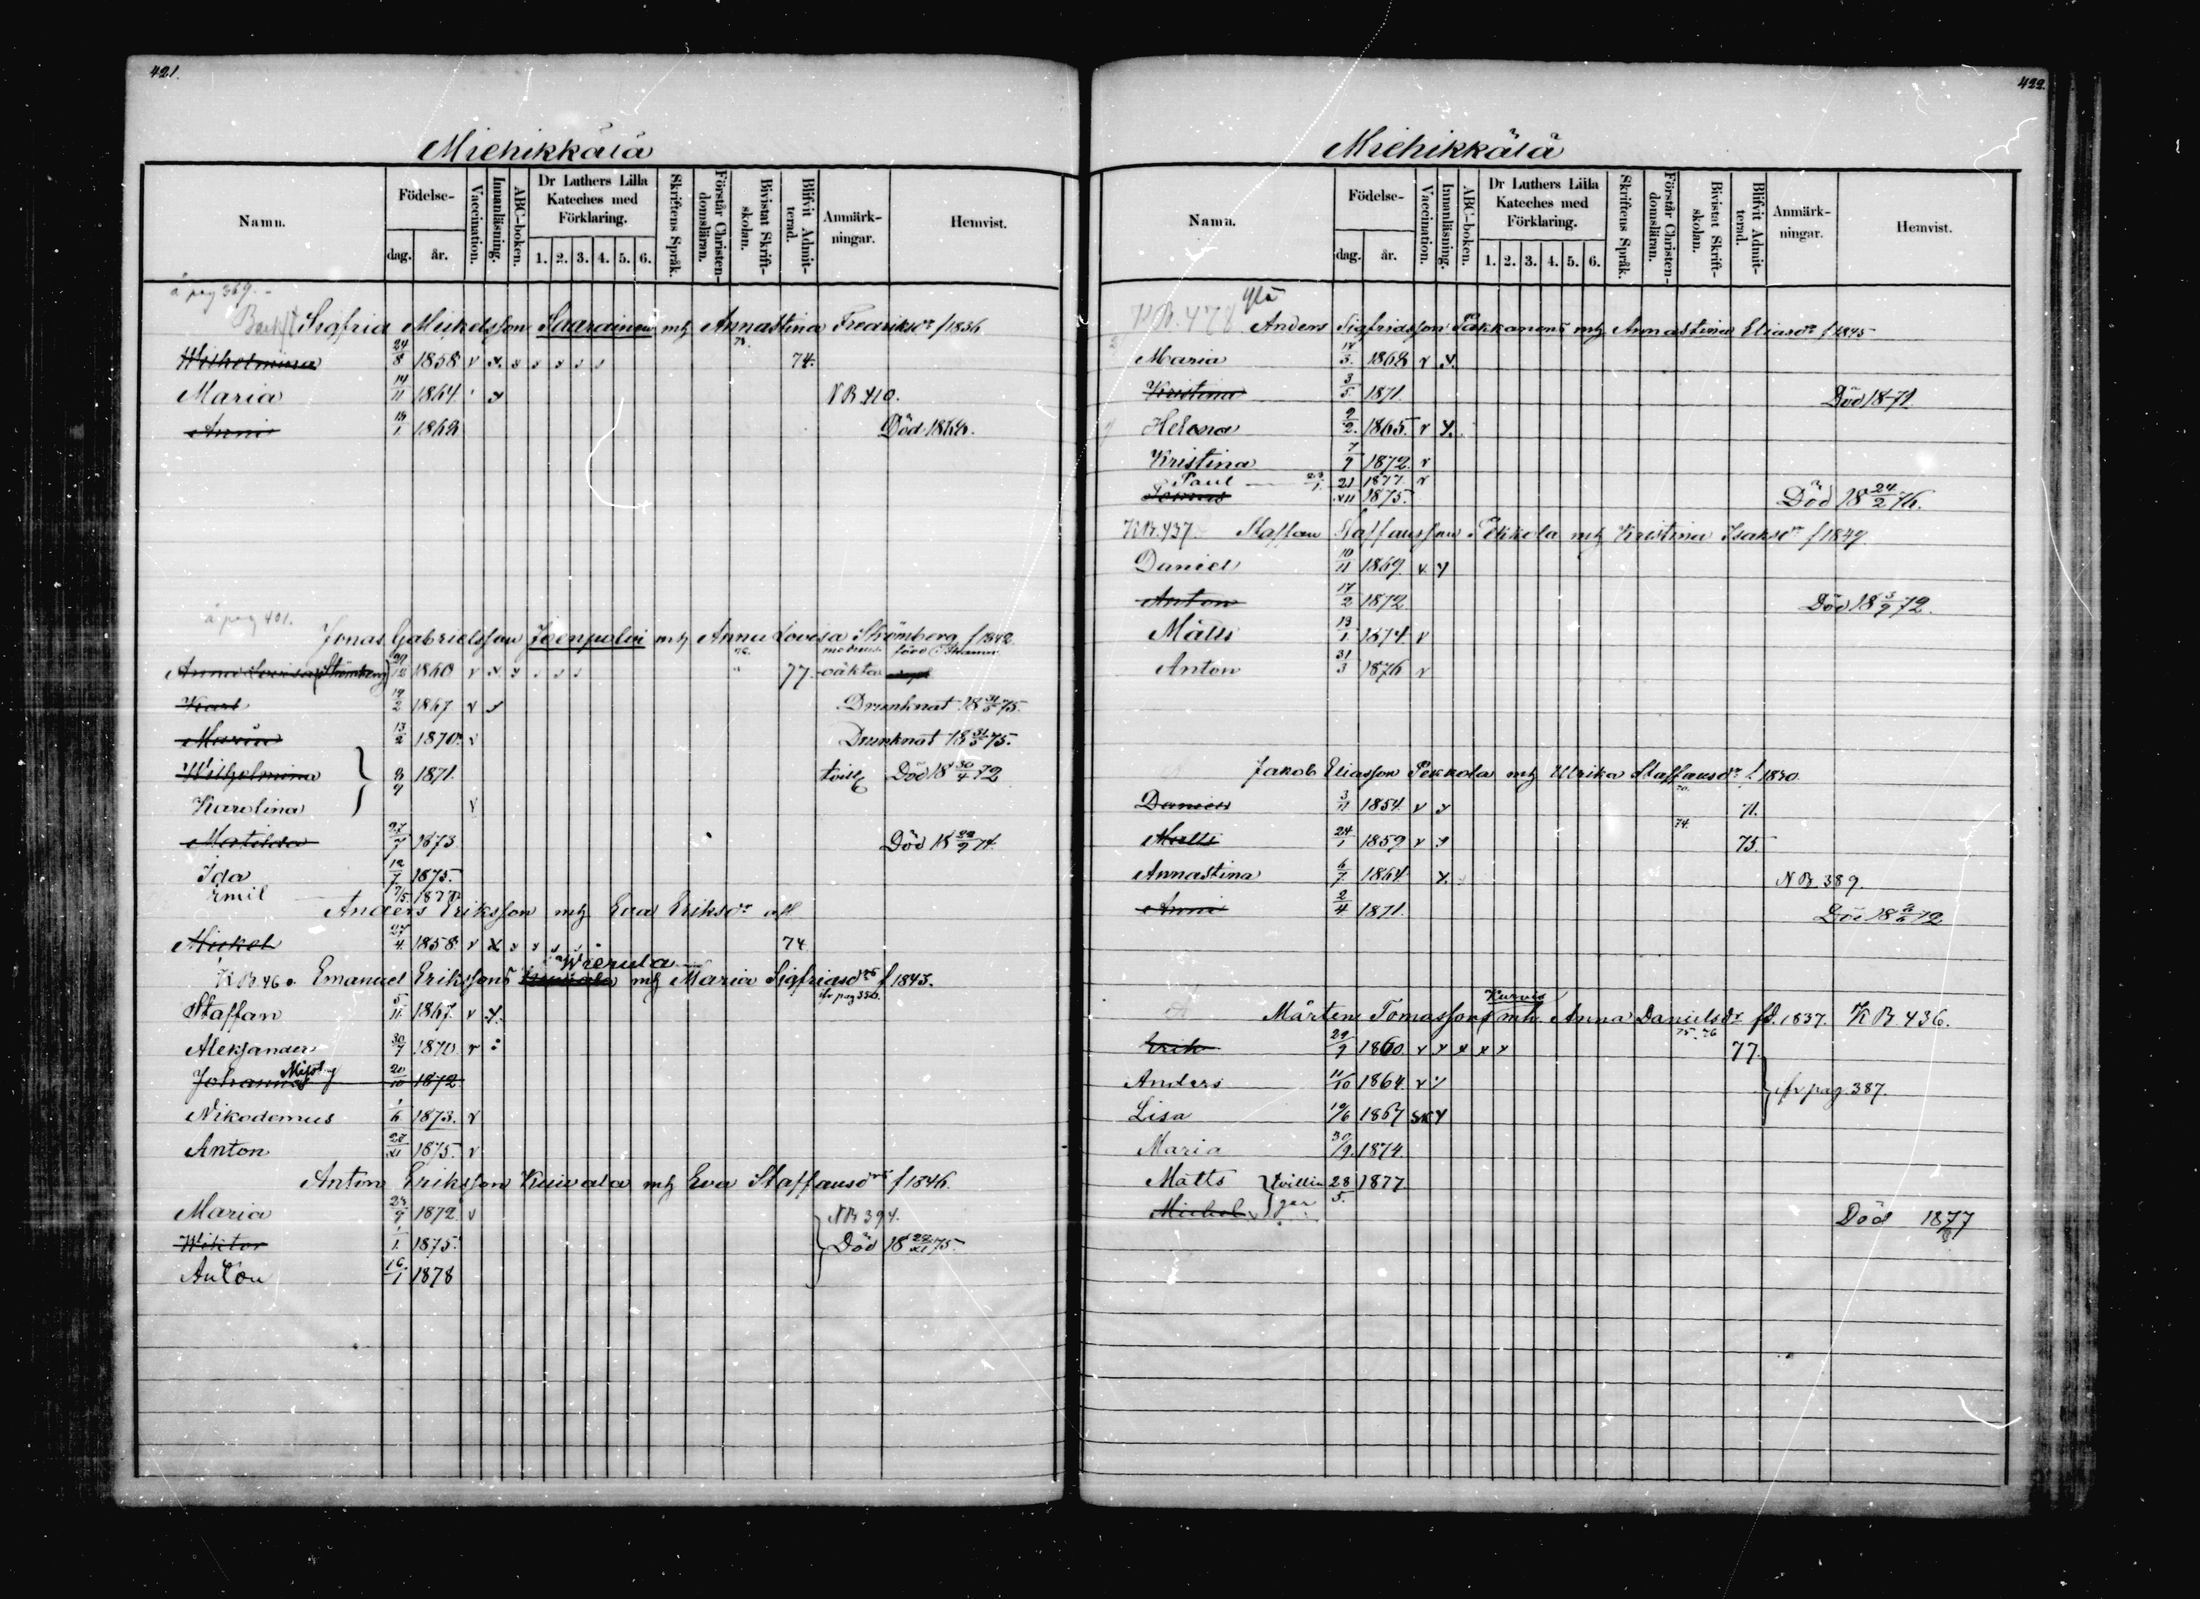 421.
Miehikkälä
Namn. Födelse- dag. år. Vaccination. Innanläsning. ABC-boken. Dr Luthers Lilla Kateches med Förklaring. 1. 2. 3. 4. 5. 6. Skriftens Språk. Förstår Christendomsläran. Bivistat Skriftskolan. Blifvit Admitterad. Anmärkningar. Hemvist.
å pag 369.
Sigfrid Mickelsson Saarainen mh Annastina Fredriksdr f 1836
Wilhelmina 24/8 1858 v x 74.
Maria 14/11 1864 NB 410.
Anni 1868 Död 1868.
å pag 401.
Jonas Gabrielsson mh Anna Lovisa Strömberg f 1842
Anna Lovisa (Strömberg) 1860 v x 77. oäkta
Karl 19/2 1867 v Drunknat 18 31/5 75.
Maria 13/2 1870 v Drunknat 18 31/5 75.
Wilhelmina } 8/9 1871. tvill Död 18 30/4 72
Karolina v
Matilda 27/7 1873 Död 18 22/9 74.
Ida 12/7 1875.
Emil 7/5 1877
Anders Eriksson mh Eva Eriksdr
Mickel 27/4 1858 v x 74
KB 460 Emanuel Erikssons Wierula mh Maria Sigfridsdr f 1843.
Staffan 5/11 1867 v x.
Aleksander 30/7 1870 v
Johannes 20/10 1872
Nikodemus 1/6 1873. v
Anton 28/XI 1875. v
Anton Eriksson Kuivala mh Eva Staffansdr f 1846.
Maria 24/9 1872 v NB 394.
Wiktor 1/1 1875. Död 18 22/XI 75.
Anton 16/1 1878
422.
Miehikkälä
Namn. Födelse- dag. år. Vaccination. Innanläsning. ABC-boken. Dr Luthers Lilla Kateches med Förklaring. 1. 2. 3. 4. 5. 6. Skriftens Språk. Förstår Christendomsläran. Bivistat Skriftskolan. Blifvit Admitterad. Anmärkningar. Hemvist.
Ylä
KB. 478 Anders Sigfridsson Pakkanens mh Annastina Eliasdr f 1845
Maria 1868 v x.
Kristina 3/5 1871. Död 1871
Helena 9/2 1865. v x.
Kristina 7/9 1872. v
Paul 1877. v
21/XII 1875. Död 18 24/2 76.
KB. 437 Staffan Staffansson Pekkola mh Kristina Isaksdr f 1849.
Daniel 10/11 1869. v y
Anton 17/2 1872 Död 18 3/9 72.
Matts 13/1 1874. v
Anton 31/3 1876 v
Jakob Eliasson Pekkola mh Ulrika Staffansdr f 1830.
Daniel 3/11 1854. v y 71.
Matts 24/1 1859 v y 74. 75.
Annastina 6/7 1864 x. NB. 389.
Anni 2/4 1871. Död 18 72
Mårten Tomasson Kurvis mh Anna Danielsdr fd. 1837. KB. 436.
Erik 29/9 1860. v x x x x 75. 76 77.
Anders 11/10 1864. v } fr pag. 387.
Lisa 19/6 1867
Maria 30/9 1874.
Matts } tvillin 28/5. 1877.
Mickel } gar Död 1877